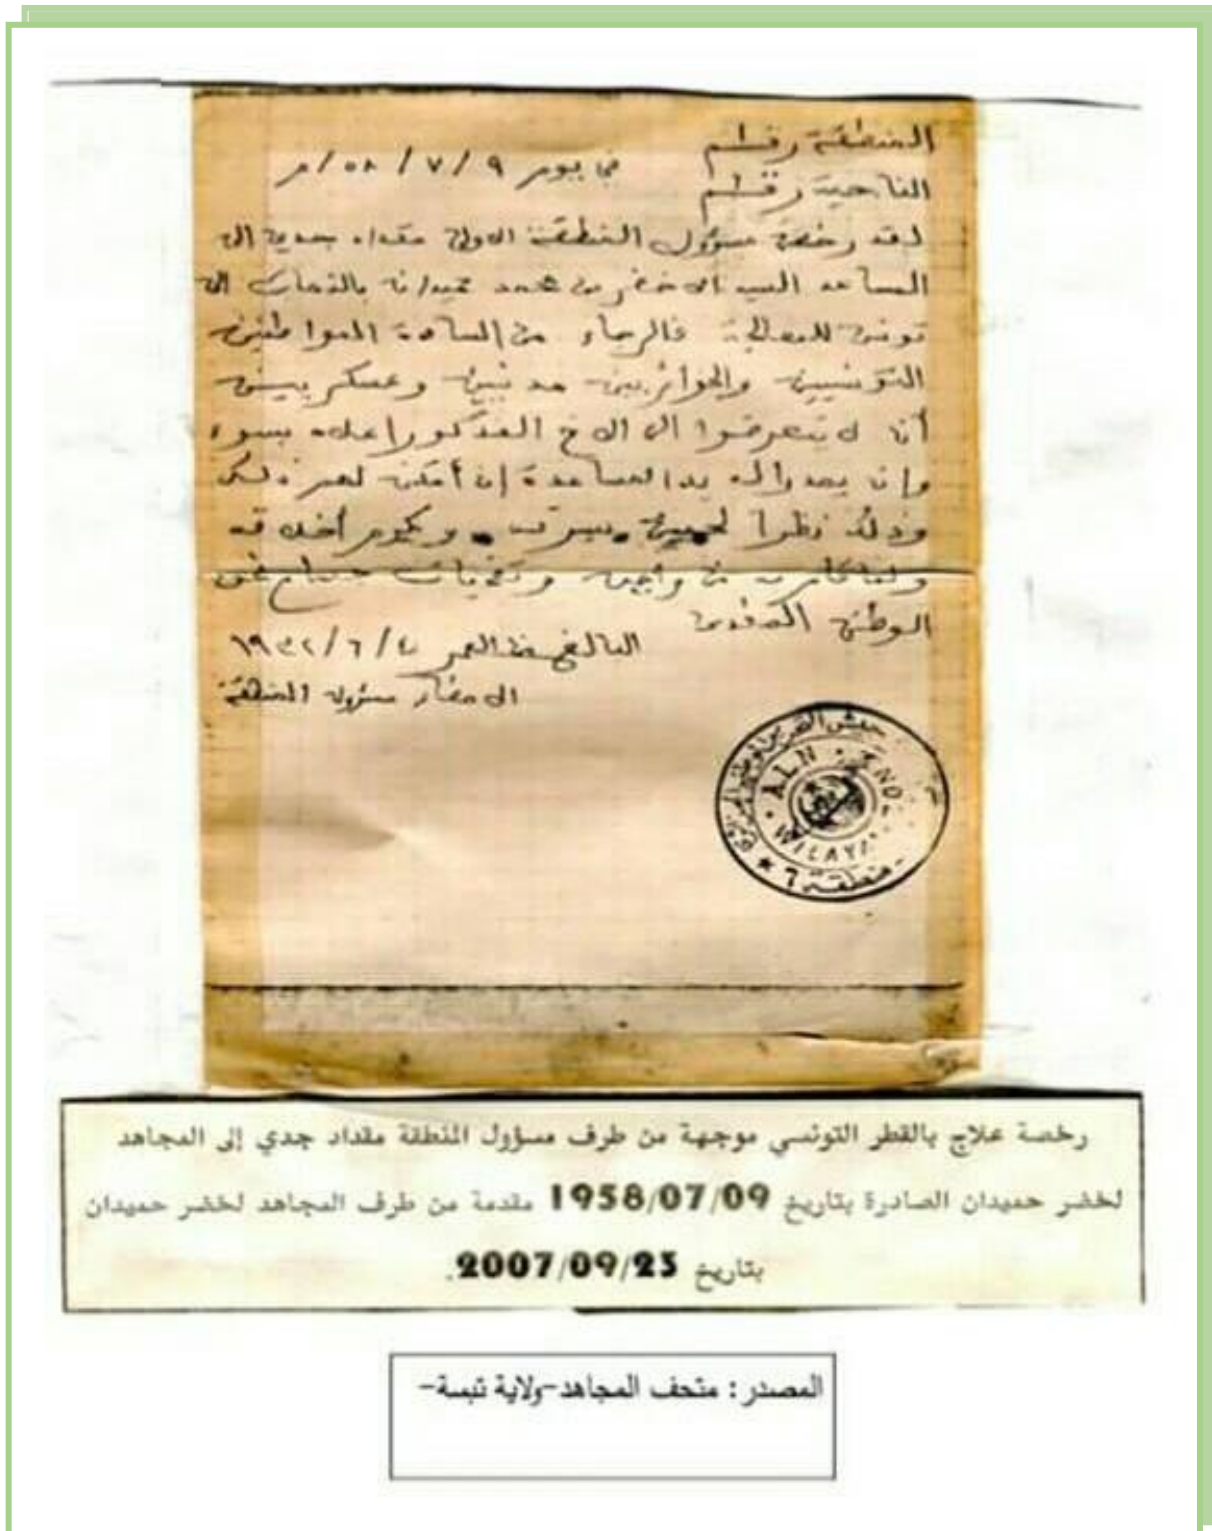 المنطقة رقم
في يوم ٩ / ٧ / ٥٨ / م
الناحية رقم
لقد رخص مسؤول المنطقة الاولى مقداد جدي الى
المساعد السيد الاخضر بن محمد حميدانة بالذهاب الى
تونس للمعالجة فالرجاء من السادة المواطنين
التونسيين والجزائريين مدنيين وعسكريين
أن لا يتعرضوا الى الاخ المذكور اعلاه بسوء
وان يمدوا له يد المساعدة إن أمكن لهم ذلك
وذلك نظرا لحسن سيرته وأخلاقه
من واجب وتضحيات
الوطني المقدس
البالغ من العمر
الامضاء مسؤول المنطقة
جيش التحرير الوطني الجزائري
ALN
WILAYA
منطقة ٦
رخصة علاج بالقطر التونسي موجهة من طرف مسؤول المنطقة مقداد جدي إلى المجاهد
لخضر حميدان الصادرة بتاريخ 1958/07/09 مقدمة من طرف المجاهد لخضر حميدان
بتاريخ 2007/09/23.
المصدر: متحف المجاهد-ولاية تبسة-